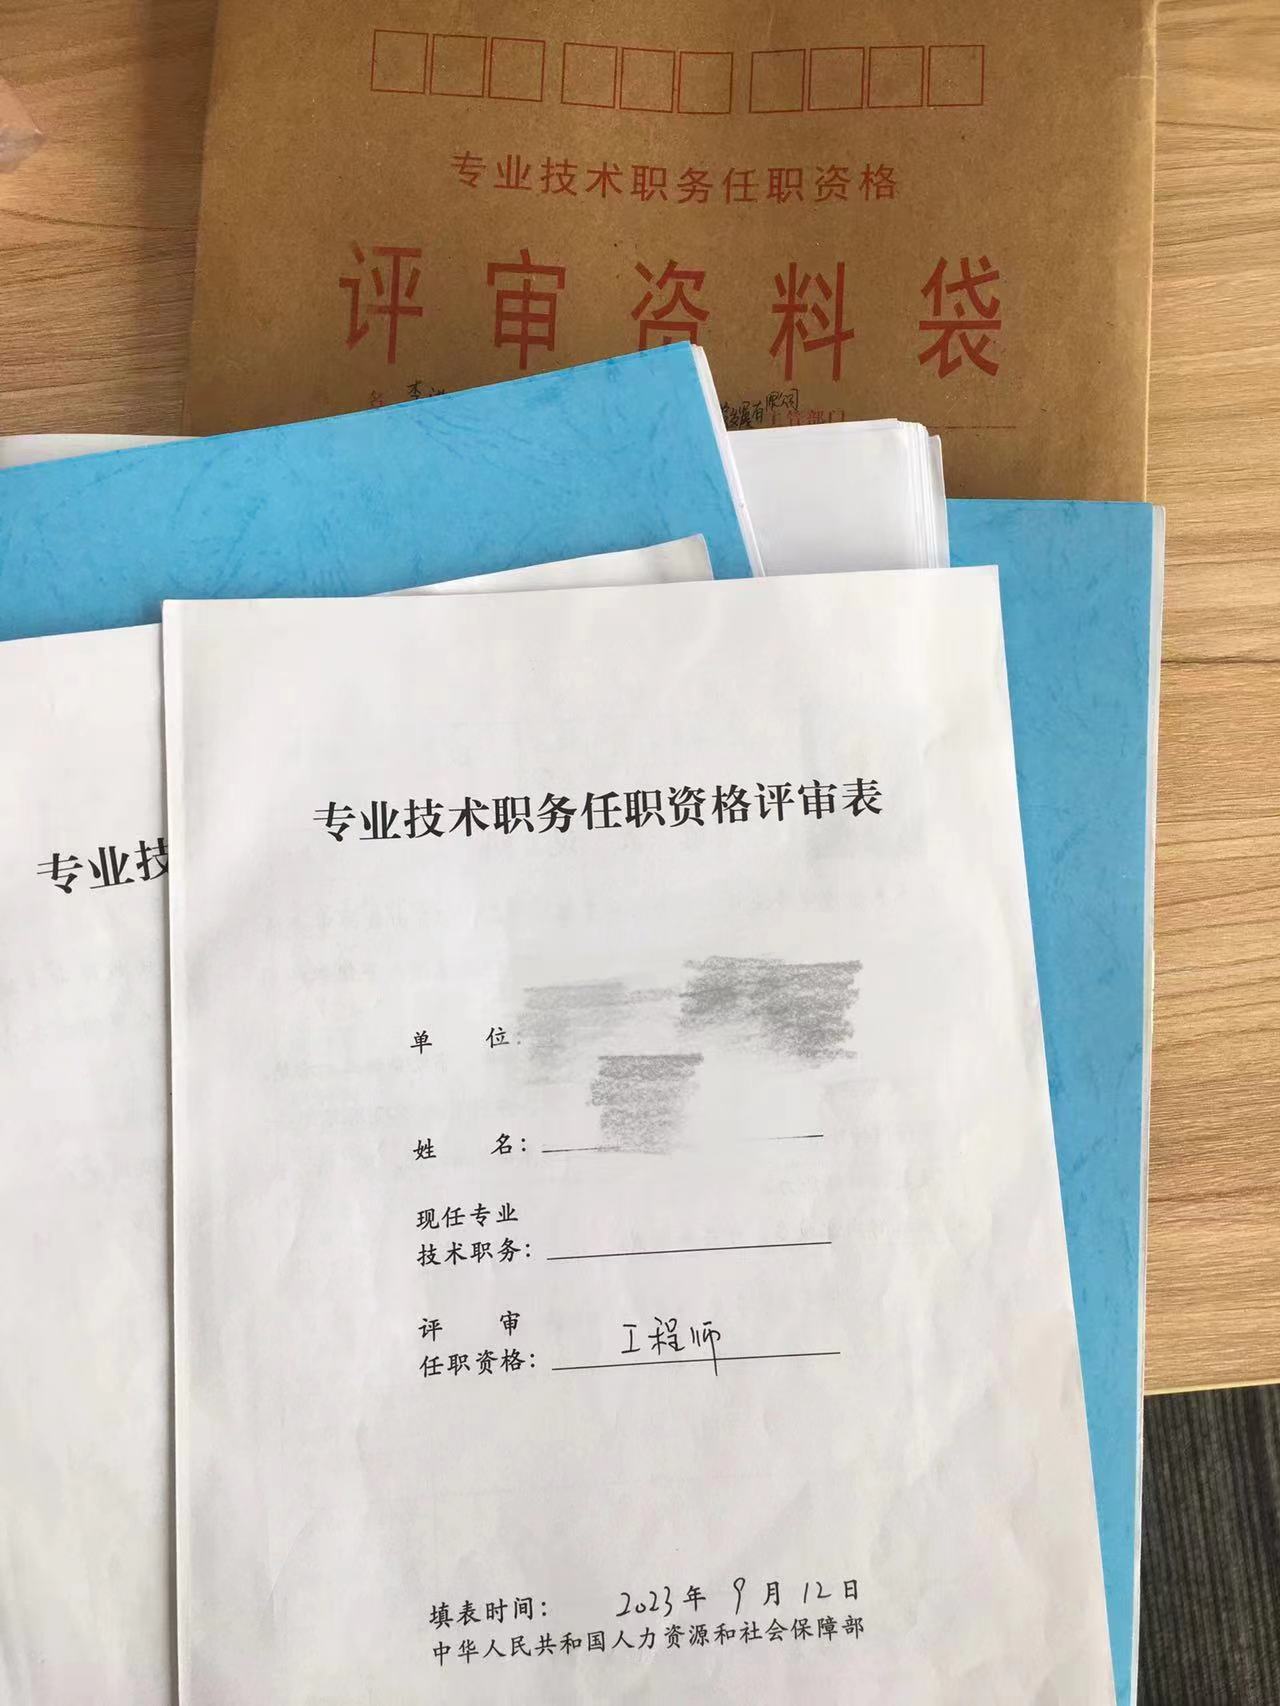 专业技术职务任职资格
评审资料袋
名 李
有限公司 主管部门
专业技
专业技术职务任职资格评审表
单 位:
姓 名:
现任专业
技术职务:
评 审
任职资格: 工程师
填表时间: 2023年9月12日
中华人民共和国人力资源和社会保障部